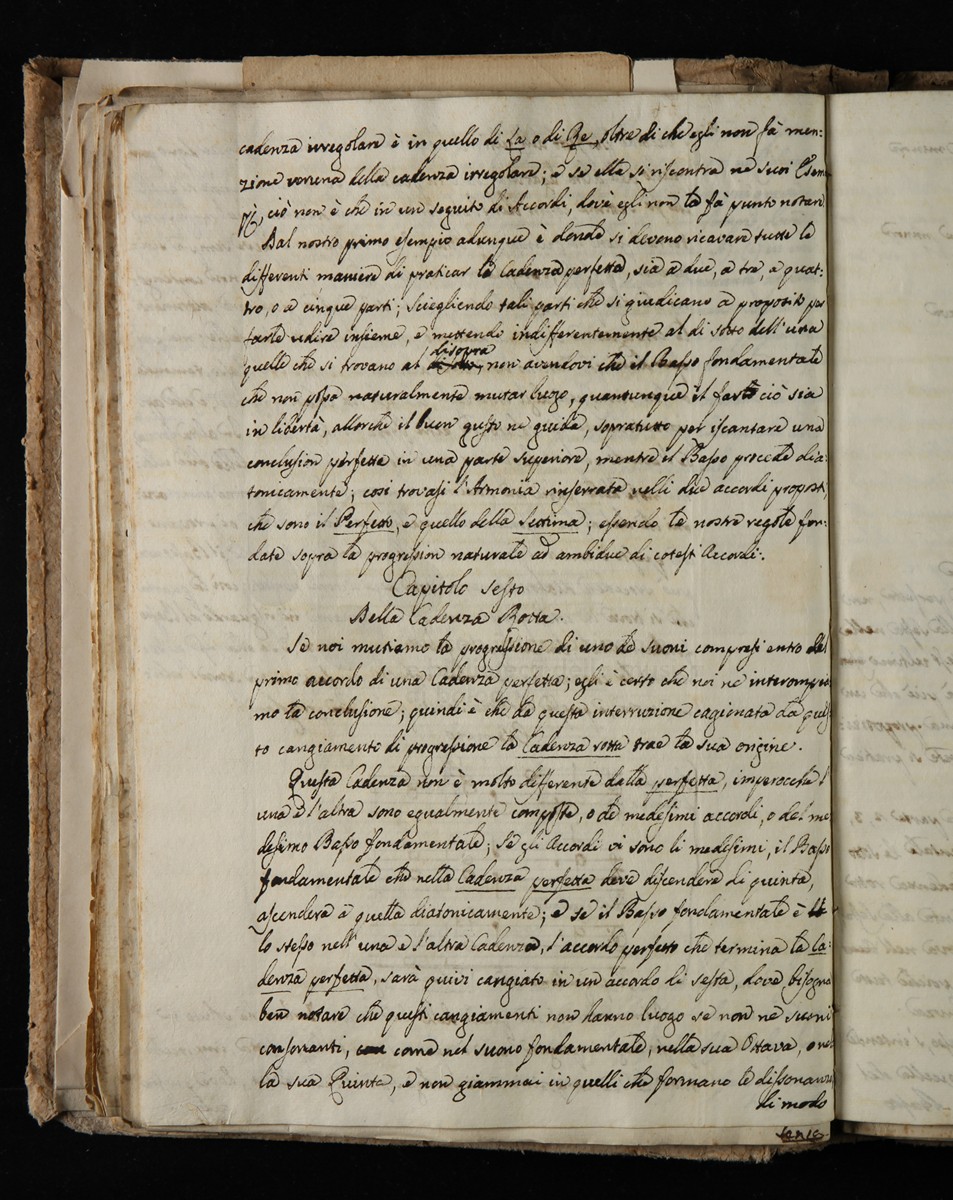 cadenza irregolare è in quello di La o di Re, oltre di che egli non fà men:
zione veruna della cadenza irregolare; e se ella si riscontra ne suoi Esem
pj, ciò non è che in un seguito di Accordi, dov'è egli non la fà punto notare
Dal nostro primo esempio adunque è donde si devono ricavare tutte le
differenti maniere di praticar la Cadenza perfetta, sia a due, a tre, a quat:
tro, o a cinque parti; sciegliendo tali parti che si giudicano a proposito per
farle udire insieme, e mettendo indifferentemente al di sotto dell'una
quelle che si trovano al di sopra, non avendovi che il Basso fondamentale
che non possa naturalmente mutar luogo, quantunque il farlo ciò sia
in libertà, allorchè il buon gusto ne guida, sopratutto per iscansare una
conclusion perfetta in una parte superiore, mentre il Basso procede dia:
tonicamente; così trovasi l'Armonia rinserrata nelli due accordi proposti,
che sono il Perfetto, e quello della Settima; essendo le nostre regole fon:
date sopra la progression naturale ad ambidue di cotesti Accordi:.
Capitolo sesto
Della Cadenza Rotta.
Se noi mutiamo la progressione di uno de suoni compresi entro del
primo accordo di una Cadenza perfetta; egli è certo che noi ne interompia
mo la conclusione; quindi è che da questa interruzione cagionata da ques
to cangiamento di progressione la Cadenza rotta trae la sua origine.
Questa Cadenza non è molto differente dalla perfetta, imperocchè l'
una e l'altra sono egualmente composte, o de medesimi accordi, o del me
desimo Basso fondamentale; se gli Accordi vi sono li medesimi, il Basso
fondamentale che nella Cadenza perfetta deve discendere di quinta,
ascendere à quella diatonicamente; e se il Basso fondamentale è
lo stesso nell'una e l'altra Cadenza, l'accordo perfetto che termina la Ca:
denza perfetta, sarà quivi cangiato in un accordo di sesta, dove bisogna
ben notare che questi cangiamenti non danno luogo se non ne suoni
consonanti, come nel suono fondamentale, nella sua Ottava, o nel
la sua Quinta, e non giammai in quelli che formano le dissonanze
di modo